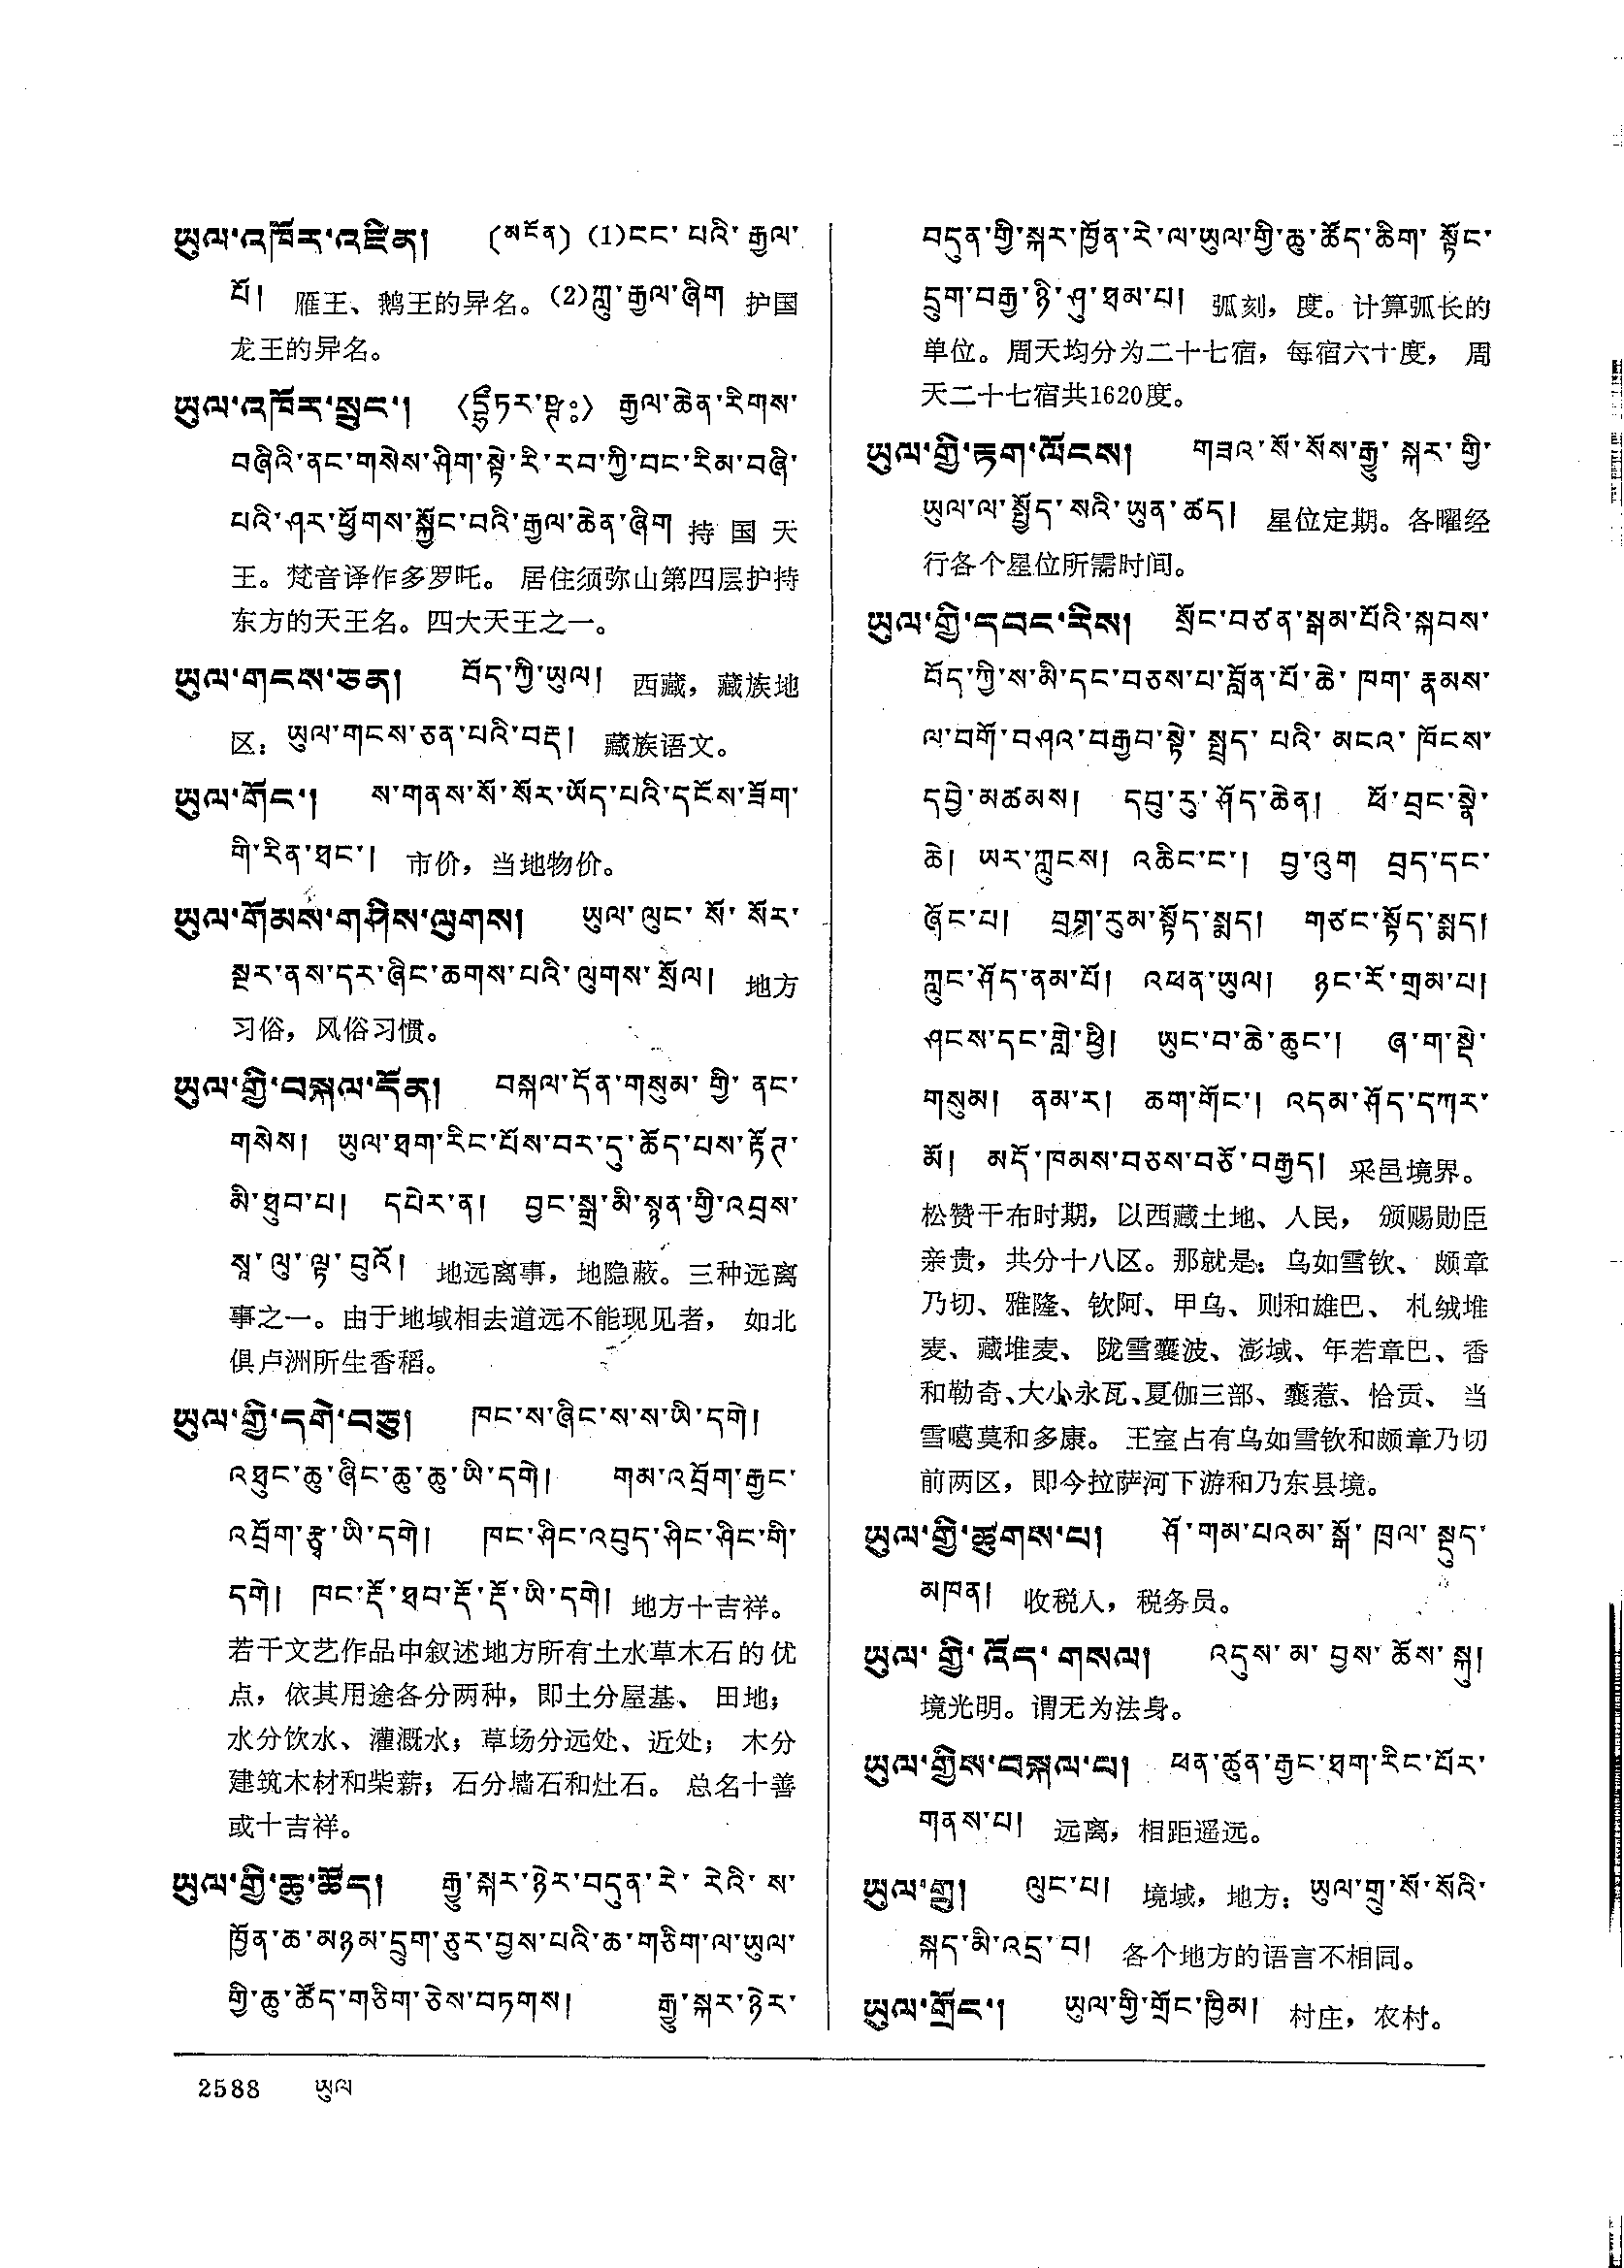 ཡུལ་འཁོར་འཛིན། (མངོན) (1)ངང་པའི་རྒྱལ་
པོ། 雁王、鹅王的异名。(2)ཀླུ་རྒྱལ་ཞིག 护国
龙王的异名。
ཡུལ་འཁོར་སྲུང་། 〈〉 རྒྱལ་ཆེན་རིགས་
བཞིའི་ནང་གསེས་ཤིག་སྟེ་རི་རབ་ཀྱི་བང་རིམ་བཞི་
པའི་ཤར་ཕྱོགས་སྐྱོང་བའི་རྒྱལ་ཆེན་ཞིག 持国天
王。梵音译作多罗吒。居住须弥山第四层护持
东方的天王名。四大天王之一。
ཡུལ་གངས་ཅན། བོད་ཀྱི་ཡུལ། 西藏，藏族地
区：ཡུལ་གངས་ཅན་པའི་བརྡ། 藏族语文。
ཡུལ་གོང་། ས་གནས་སོ་སོར་ཡོད་པའི་དངོས་ཟོག་
གི་རིན་ཐང་། 市价，当地物价。
ཡུལ་གོམས་གཤིས་ལུགས། ཡུལ་ལུང་སོ་སོར་
སྔར་ནས་དར་ཞིང་ཆགས་པའི་ལུགས་སྲོལ། 地方
习俗，风俗习惯。
ཡུལ་གྱི་བསྐལ་དོན། བསྐལ་དོན་གསུམ་གྱི་ནང་
གསེས། ཡུལ་ཐག་རིང་པོས་བར་དུ་ཆོད་པས་རྟོག་
མི་ཐུབ་པ། དཔེར་ན། བྱང་སྒྲ་མི་སྙན་གྱི་འབྲས་
སཱ་ལུ་ལྟ་བུའོ། 地远离事，地隐蔽。三种远离
事之一。由于地域相去道远不能现见者，如北
俱卢洲所生香稻。
ཡུལ་གྱི་དགེ་བཅུ། ཁང་ས་ཞིང་ས་ས་ཡི་དགེ།
འཐུང་ཆུ་ཞིང་ཆུ་ཆུ་ཡི་དགེ། གམ་འབྲོག་རྒྱང་
འབྲོག་རྩྭ་ཡི་དགེ། ཁང་ཤིང་འབུད་ཤིང་ཤིང་གི་
དགེ། ཁང་རྡོ་ཐབ་རྡོ་རྡོ་ཡི་དགེ། 地方十吉祥。
若干文艺作品中叙述地方所有土水草木石的优
点，依其用途各分两种，即土分屋基、田地；
水分饮水、灌溉水；草场分远处、近处；木分
建筑木材和柴薪；石分墙石和灶石。总名十善
或十吉祥。
ཡུལ་གྱི་ཆུ་ཚོད། རྒྱུ་སྐར་ཉེར་བདུན་རེ་རེའི་ས་
ཁྱོན་ཆ་མཉམ་དྲུག་ཅུར་བྱས་པའི་ཆ་གཅིག་ལ་ཡུལ་
གྱི་ཆུ་ཚོད་གཅིག་ཅེས་བཏགས། རྒྱུ་སྐར་ཉེར་
བདུན་གྱི་སྐར་ཁྱོན་རེ་ལ་ཡུལ་གྱི་ཆུ་ཚོད་ཆིག་སྟོང་
དྲུག་བརྒྱ་ཉི་ཤུ་ཐམ་པ། 弧刻，度。计算弧长的
单位。周天均分为二十七宿，每宿六十度，周
天二十七宿共1620度。
ཡུལ་གྱི་རྟག་ལོངས། གཟའ་སོ་སོས་རྒྱུ་སྐར་གྱི་
ཡུལ་ལ་སྤྱོད་སའི་ཡུན་ཚད། 星位定期。各曜经
行各个星位所需时间。
ཡུལ་གྱི་དབང་རིས། སྲོང་བཙན་སྒམ་པོའི་སྐབས་
བོད་ཀྱི་ས་མི་དང་བཅས་པ་བློན་པོ་ཆེ་ཁག་རྣམས་
ལ་བགོ་བཤའ་བརྒྱབ་སྟེ་སྤྲད་པའི་མངའ་ཁོངས་
དབྱེ་མཚམས། དབུ་རུ་ཤོད་ཆེན། ཕོ་བྲང་སྣེ་
ཆེ། ཡར་ཀླུངས། འཆིང་ང་། བྱ་འུག བྲད་དང་
ཞོང་པ། བྲག་རུམ་སྟོད་སྨད། གཙང་སྟོད་སྨད།
ཀླུང་ཤོད་ནམ་པོ། འཕན་ཡུལ། ཉང་རོ་གྲམ་པ།
ཤངས་དང་གླེ་ཕྱི། ཡུང་བ་ཆེ་ཆུང་། ཞ་ག་སྡེ་
གསུམ། ནམ་ར། ཆག་གོང་། འདམ་ཤོད་དཀར་
མོ། མདོ་ཁམས་བཅས་བཅོ་བརྒྱད། 采邑境界。
松赞干布时期，以西藏土地、人民，颁赐勋臣
亲贵，共分十八区。那就是：乌如雪钦、颇章
乃切、雅隆、钦阿、甲乌、则和雄巴、札绒堆
麦、藏堆麦、陇雪囊波、澎域、年若章巴、香
和勒奇、大小永瓦、夏伽三部、囊惹、恰贡、当
雪噶莫和多康。王室占有乌如雪钦和颇章乃切
前两区，即今拉萨河下游和乃东县境。
ཡུལ་གྱི་ཚུགས་པ། ཤོ་གམ་པའམ་སྒོ་ཁྲལ་སྡུད་
མཁན། 收税人，税务员。
ཡུལ་གྱི་འོད་གསལ། འདུས་མ་བྱས་ཆོས་སྐུ།
境光明。谓无为法身。
ཡུལ་གྱིས་བསྐལ་པ། ཕན་ཚུན་རྒྱང་ཐག་རིང་པོར་
གནས་པ། 远离，相距遥远。
ཡུལ་གྲུ། ལུང་པ། 境域，地方：ཡུལ་གྲུ་སོ་སོའི་
སྐད་མི་འདྲ་བ། 各个地方的语言不相同。
ཡུལ་གྲོང་། ཡུལ་གྱི་གྲོང་ཁྱིམ། 村庄，农村。
2588 ཡུལ